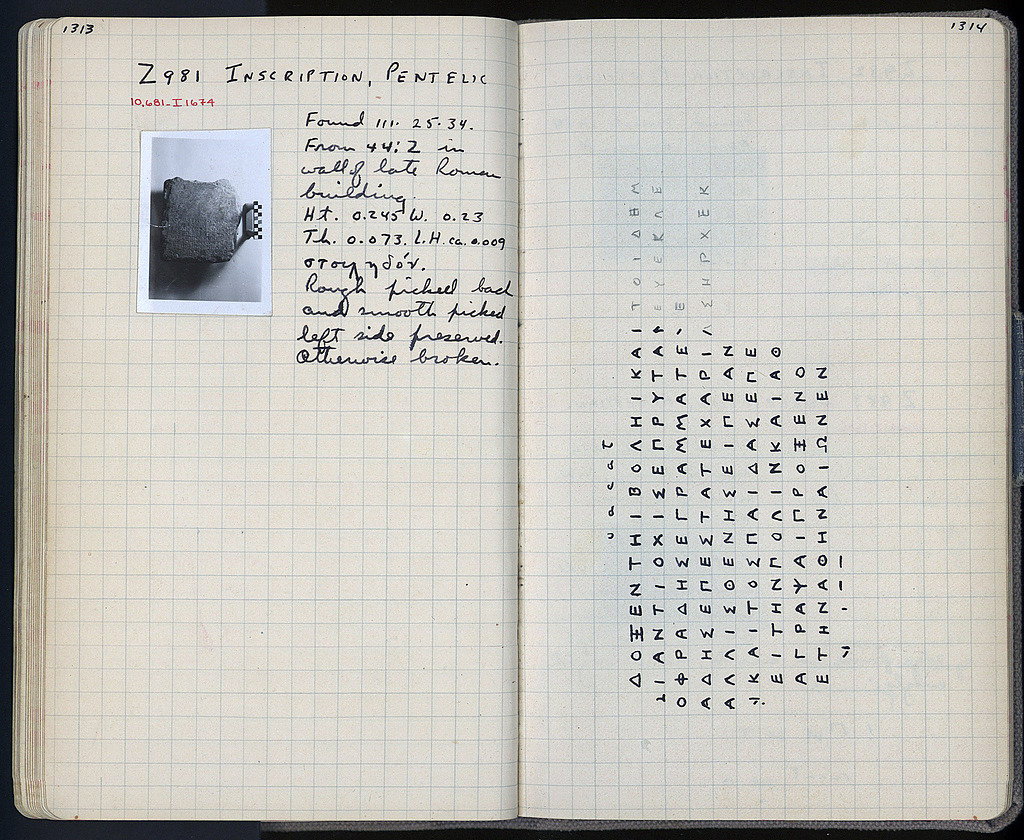 1313
Z981 INSCRIPTION, PENTELIC
10,681-I 1674
Found III·25·34.
From 44:Z in
wall of late Roman
building.
Ht. 0.245 W. 0.23
Th. 0.073. L.H. ca. 0.009
στοιχηδόν.
Rough picked back
and smooth picked
left side preserved.
Otherwise broken.
1314
vacat
ΔΟΞΕΝΤΗΙΒΟΛΗΙΚΑΙΤΟΙΔΗΜ
ΙΑΝΤΙΟΧΙΣΕΠΡΥΤΑΝΕΥΕΚΛΕ
ΟΦΡΑΔΗΣΕΓΡΑΜΜΑΤΕ Ε
ΑΔΗΣΕΠΕΣΤΑΤΕΧΑΡΙΑΣΗΡΧΕΚ
ΑΛΛΙΣΘΕΝΗΣΕΙΠΕΑΝ
ΚΑΙΤΟΣΠΑΙΔΑΣΕΠΕ
ΕΙΤΗΝΠΟΛΙΝΚΑΙΑΘ
ΑΓΡΑΥΑΙΠΡΟΞΕΝΟ
ΕΤΗΝΑΘΗΝΑΙΩΝΕΝ